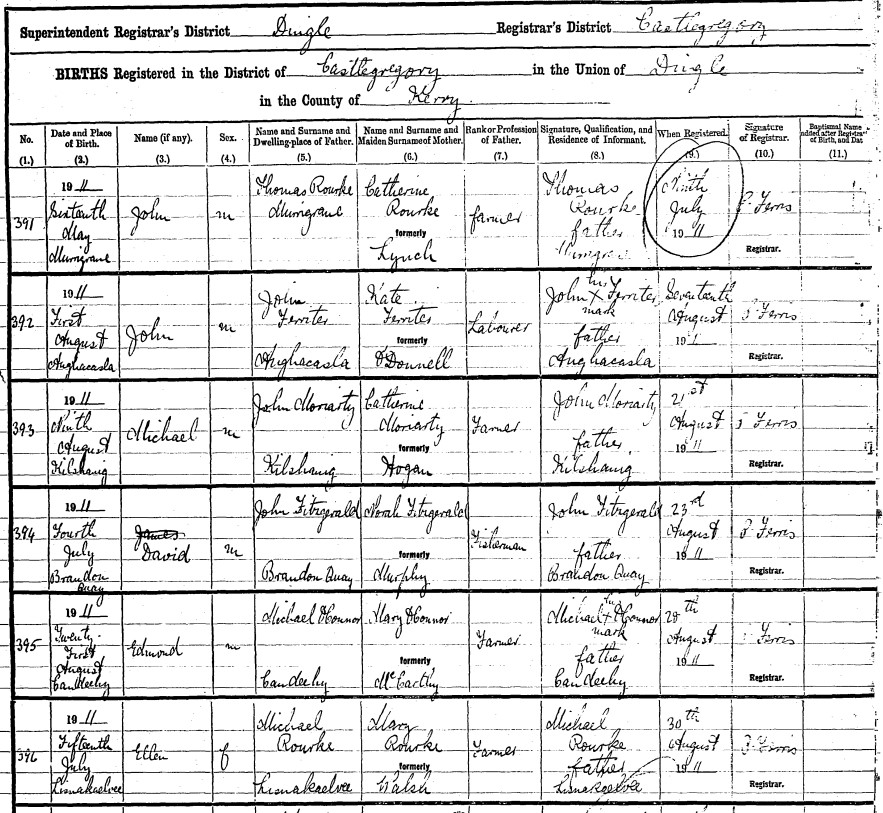 Superintendent Registrar's District Dingle Registrar's District Castlegregory
BIRTHS Registered in the District of Castlegregory in the Union of Dingle
in the County of Kerry
No. Date and Place of Birth. Name (if any). Sex. Name and Surname and Dwelling-place of Father. Name and Surname and Maiden Surname of Mother. Rank or Profession of Father. Signature, Qualification, and Residence of Informant. When Registered. Signature of Registrar. Baptismal Name
(1.) (2.) (3.) (4.) (5.) (6.) (7.) (8.) (9.) (10.) (11.)
391
1911
Sixteenth
May
Murrigrane
John
m
Thomas Rourke
Murrigrane
Catherine
Rourke
formerly
Lynch
farmer
Thomas
Rourke
father
Ninth
July
1911
Ferris
Registrar.
392
1911
First
August
Aughacasla
John
m
John
Ferriter
Aughacasla
Kate
Ferriter
formerly
O'Donnell
Labourer
his
John X Ferriter
mark
father
Aughacasla
Seventeenth
August
191
Ferris
Registrar.
393
1911
Ninth
August
Kilshanig
Michael
m
John Moriarty
Kilshanig
Catherine
Moriarty
formerly
Hogan
Farmer
John Moriarty
father
Kilshanig
21st
August
1911
Ferris
Registrar.
394
1911
Fourth
July
Brandon
Quay
James
David
m
John Fitzgerald
Brandon Quay
Norah Fitzgerald
formerly
Murphy
Fisherman
John Fitzgerald
father
Brandon Quay
23rd
August
1911
Ferris
Registrar.
395
1911
Twenty-
First
August
Candeehy
Edmond
m
Michael O'Connor
Candeehy
Mary O'Connor
formerly
McCarthy
Farmer
his
Michael X O'Connor
mark
father
Candeehy
28th
August
1911
Ferris
Registrar.
396
1911
Fifteenth
July
Lisnakaelvee
Ellen
f
Michael
Rourke
Lisnakaelvee
Mary
Rourke
formerly
Walsh
Farmer
Michael
Rourke
father
Lisnakaelvee
30th
August
1911
Ferris
Registrar.